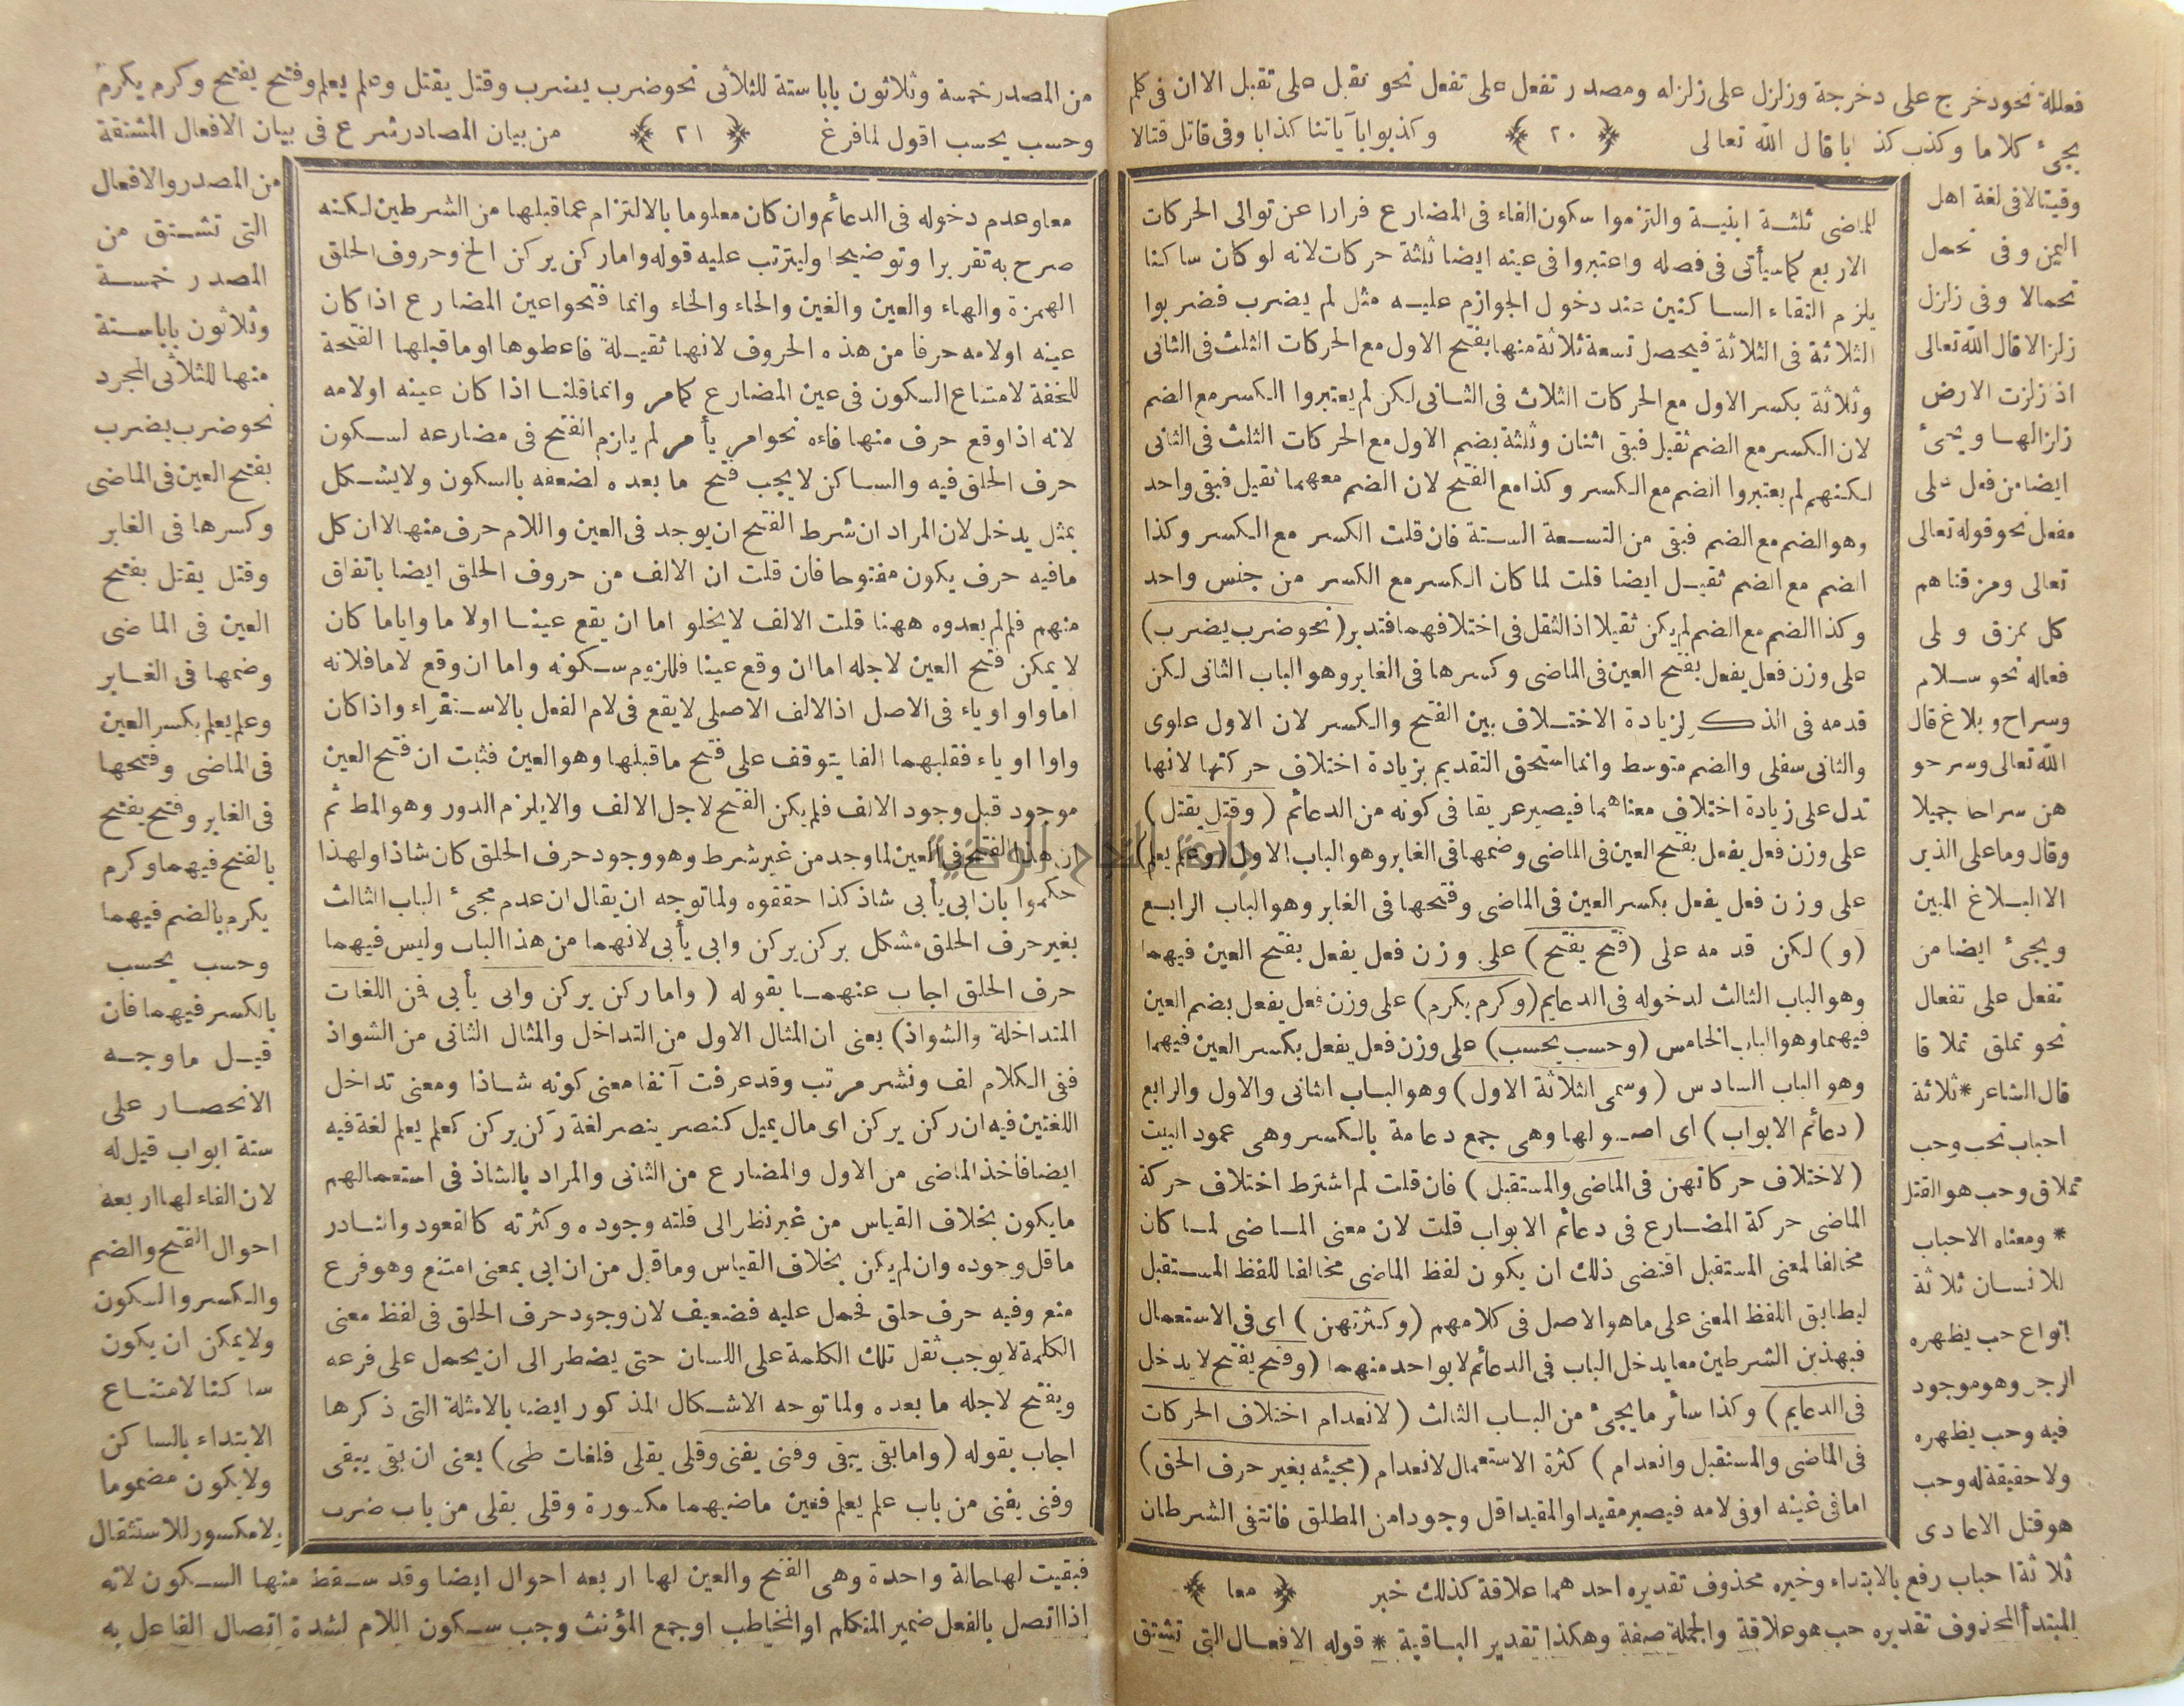 فعللة نحو دخرج على دخرجة وزلزل على زلزله ومصدر تفعل على تفعل نحو تقبل على تقبل الا ان فى كلم
يجئ كلاما وكذب كذابا قال الله تعالى ﴿ ٢٠ ﴾ وكذبوا بآياتنا كذابا وفى قاتل قتالا
وقيتالا فى لغة اهل
اليمن وفى تحمل
تحمالا وفى زلزل
زلزالا قال الله تعالى
اذا زلزت الارض
زلزالها ويجئ
ايضا من فعل على
مفعل نحو قوله تعالى
تعالى ومزقناهم
كل ممزق وعلى
فعاله نحو سلام
وسراح وبلاغ قال
الله تعالى وسرحو
هن سراحا جميلا
وقال وما على الذير
الا البلاغ المبين
ويجئ ايضا من
تفعل على تفعال
نحو تملق تملاقا
قال الشاعر * ثلاثة
احباب نحب وحب
تملاق وحب هو القتل
* ومعناه الاحباب
للانسان ثلاثة
انواع حب يظهره
الرجر وهو موجود
فيه وحب يظهره
ولا حقيقة له وحب
هو قتل الاعادى
للماضى ثلثة ابنية والتزموا سكون الفاء فى المضارع فرارا عن توالى الحركات
الاربع كما سيأتى فى فصله واعتبروا فى عينه ايضا ثلثة حركات لانه لو كان ساكنا
يلزم التقاء الساكنين عند دخول الجوازم عليه مثل لم يضرب فضربوا
الثلاثة فى الثلاثة فيحصل تسعة ثلاثة منها بفتح الاول مع الحركات الثلث فى الثانى
وثلاثة بكسر الاول مع الحركات الثلاث فى الثانى لكن لم يعتبروا الكسر مع الضم
لان الكسر مع الضم ثقيل فبقى اثنان وثلثة بضم الاول مع الحركات الثلث فى الثانى
لكنهم لم يعتبروا الضم مع الكسر وكذا مع الفتح لان الضم معهما ثقيل فبقى واحد
وهو الضم مع الضم فبقى من التسعة الستة فان قلت الكسر مع الكسر وكذا
الضم مع الضم ثقيل ايضا قلت لما كان الكسر مع الكسر من جنس واحد
وكذا الضم مع الضم لم يكن ثقيلا اذ الثقل فى اختلافهما فتدبر (نحو ضرب يضرب)
على وزن فعل يفعل بفتح العين فى الماضى وكسرها فى الغابر وهو الباب الثانى لكن
قدمه فى الذكر لزيادة الاختلاف بين الفتح والكسر لان الاول علوى
والثانى سفلى والضم متوسط وانما استحق التقديم بزيادة اختلاف حركتها لانها
تدل على زيادة اختلاف معناهما فيصير عريقا فى كونه من الدعائم (وقتل يقتل)
على وزن فعل يفعل بفتح العين فى الماضى وضمها فى الغابر وهو الباب الاول (وعلم يعلم)
على وزن فعل يفعل بكسر العين فى الماضى وفتحها فى الغابر وهو الباب الرابع
(و) لكن قدمه على (فتح يفتح) على وزن فعل يفعل بفتح العين فيهما
وهو الباب الثالث لدخوله فى الدعايم (وكرم يكرم) على وزن فعل يفعل بضم العين
فيهما وهو الباب الخامس (وحسب يحسب) على وزن فعل يفعل بكسر العين فيهما
وهو الباب السادس (وسمى الثلاثة الاول) وهو الباب الثانى والاول والرابع
(دعائم الابواب) اى اصولها وهى جمع دعامة بالكسر وهى عمود البيت
(لاختلاف حركاتهن فى الماضى والمستقبل) فان قلت لم اشترط اختلاف حركة
الماضى حركة المضارع فى دعائم الابواب قلت لان معنى الماضى لما كان
مخالفا لمعنى المستقبل اقتضى ذلك ان يكون لفظ الماضى مخالفا للفظ المستقبل
ليطابق اللفظ المعنى على ما هو الاصل فى كلامهم (وكثرتهن) اى فى الاستعمال
فبهذين الشرطين معا يدخل الباب فى الدعائم لا بواحد منهما (وفتح يفتح لا يدخل
فى الدعايم) وكذا سائر ما يجئ من الباب الثالث (لانعدام اختلاف الحركات
فى الماضى والمستقبل وانعدام) كثرة الاستعمال لانعدام (مجيئه بغير حرف الحق)
اما فى غينه او فى لامه فيصير مقيدا والمقيد اقل وجودا من المطلق فانتفى الشرطان
ثلاثة احباب رفع بالابتداء وخبره محذوف تقديره احدهما علاقة كذلك خبر ﴿ معا ﴾
المبتدأ المحذوف تقديره حب هو علاقة والجملة صفة وهكذا تقدير الباقية * قوله الافعال التى تشتق
من المصدر خمسة وثلاثون بابا ستة للثلاثى نحو ضرب يضرب وقتل يقتل وعلم يعلم وفتح يفتح وكرم يكرم
وحسب يحسب اقول لما فرغ ﴿ ٢١ ﴾ من بيان المصادر شرع فى بيان الافعال المشتقة
معا وعدم دخوله فى الدعائم وان كان معلوما بالالتزام عما قبلها من الشرطين لكنه
صرح به تقريرا وتوضيحا وليترتب عليه قوله واما ركن يركن الخ وحروف الحلق
الهمزة والهاء والعين والغين والحاء والخاء وانما فتحوا عين المضارع اذا كان
عينه او لامه حرفا من هذه الحروف لانها ثقيلة فاعطوها او ما قبلها الفتحة
للخفة لامتناع السكون فى عين المضارع كما مر وانما قلنا اذا كان عينه او لامه
لانه اذا وقع حرف منها فاءه نحو امر يأمر لم يلزم الفتح فى مضارعه لسكون
حرف الحلق فيه والساكن لا يجب فتح ما بعده لضعفه بالسكون ولا يشكل
بمثل يدخل لان المراد ان شرط الفتح ان يوجد فى العين واللام حرف منها لا ان كل
ما فيه حرف يكون مفتوحا فان قلت ان الالف من حروف الحلق ايضا باتفاق
منهم فلم لم يعدوه ههنا قلت الالف لا يخلو اما ان يقع عينا او لا ما واياما كان
لا يمكن فتح العين لاجله اما ان وقع عينا فللزوم سكونه واما ان وقع لاما فلانه
اما واو او ياء فى الاصل اذ الالف الاصلى لا يقع فى لام الفعل بالاستقراء واذا كان
واوا او ياء فقلبهما الفا يتوقف على فتح ما قبلها وهو العين فثبت ان فتح العين
موجود قبل وجود الالف فلم يكن الفتح لاجل الالف والا يلزم الدور وهو المط ثم
ان هذا الفتح فى العين لما وجد من غير شرط وهو وجود حرف الحلق كان شاذا ولهذا
حكموا بان ابى يأبى شاذ كذا حققوه ولما توجه ان يقال ان عدم مجئ الباب الثالث
بغير حرف الحلق مشكل بركن يركن وابى يأبى لانهما من هذا الباب وليس فيهما
حرف الحلق اجاب عنهما بقوله (واما ركن يركن وابى يأبى فمن اللغات
المتداخلة والشواذ) يعنى ان المثال الاول من التداخل والمثال الثانى من الشواذ
ففى الكلام لف ونشر مرتب وقد عرفت آنفا معنى كونه شاذا ومعنى تداخل
اللغتين فيه ان ركن يركن اى مال يميل كنصر ينصر لغة ركن يركن كعلم يعلم لغة فيه
ايضا فاخذ الماضى من الاول والمضارع من الثانى والمراد بالشاذ فى استعمالهم
ما يكون بخلاف القياس من غير نظر الى قلته وجوده وكثرته كالقعود والنادر
ما قل وجوده وان لم يكن بخلاف القياس وما قيل من ان ابى بمعنى امتنع وهو فرع
منع وفيه حرف حلق فحمل عليه فضعيف لان وجود حرف الحلق فى لفظ معنى
الكلمة لا يوجب ثقل تلك الكلمة على اللسان حتى يضطر الى ان يحمل على فرعه
ويفتح لاجله ما بعده ولما توجه الاشكال المذكور ايضا بالامثلة التى ذكرها
اجاب بقوله (واما بقى يبقى وفنى يفنى وقلى يقلى فلغات طى) يعنى ان بقى يبقى
وفنى يفنى من باب علم يعلم فعين ماضيهما مكسورة وقلى يقلى من باب ضرب
من المصدر والافعال
التى تشتق من
المصدر خمسة
وثلاثون بابا ستة
منها للثلاثى المجرد
نحو ضرب يضرب
بفتح العين فى الماضى
وكسرها فى الغابر
وقتل يقتل بفتح
العين فى الماضى
وضمها فى الغابر
وعلم يعلم بكسر العين
فى الماضى وفتحها
فى الغابر وفتح يفتح
بالفتح فيهما وكرم
يكرم بالضم فيهما
وحسب يحسب
بالكسر فيهما فان
قيل ما وجه
الانحصار على
ستة ابواب قيل له
لان الفاء لها اربعة
احوال الفتح والضم
والكسر والسكون
ولا يمكن ان يكون
ساكنا لامتناع
الابتداء بالساكن
ولا يكون مضموما
ولا مكسور للاستثقال
فبقيت لها حالة واحدة وهى الفتح والعين لها اربعه احوال ايضا وقد سقط منها السكون لانه
اذا اتصل بالفعل ضمير المتكلم او المخاطب او جمع المؤنث وجب سكون اللام لشدة اتصال الفاعل به